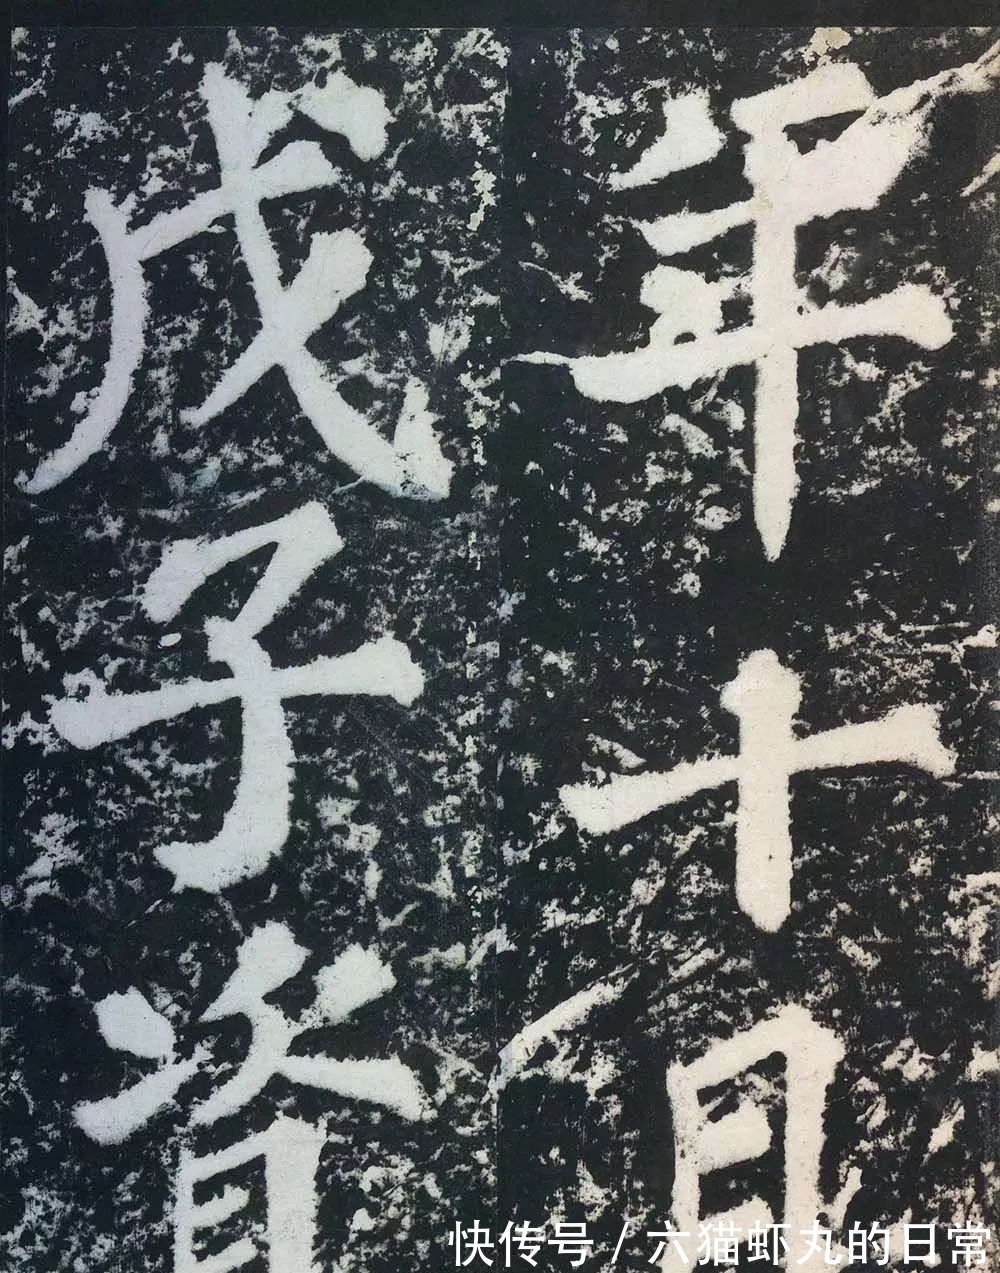 年十月
戊子資
快传号 / 六猫虾丸的日常